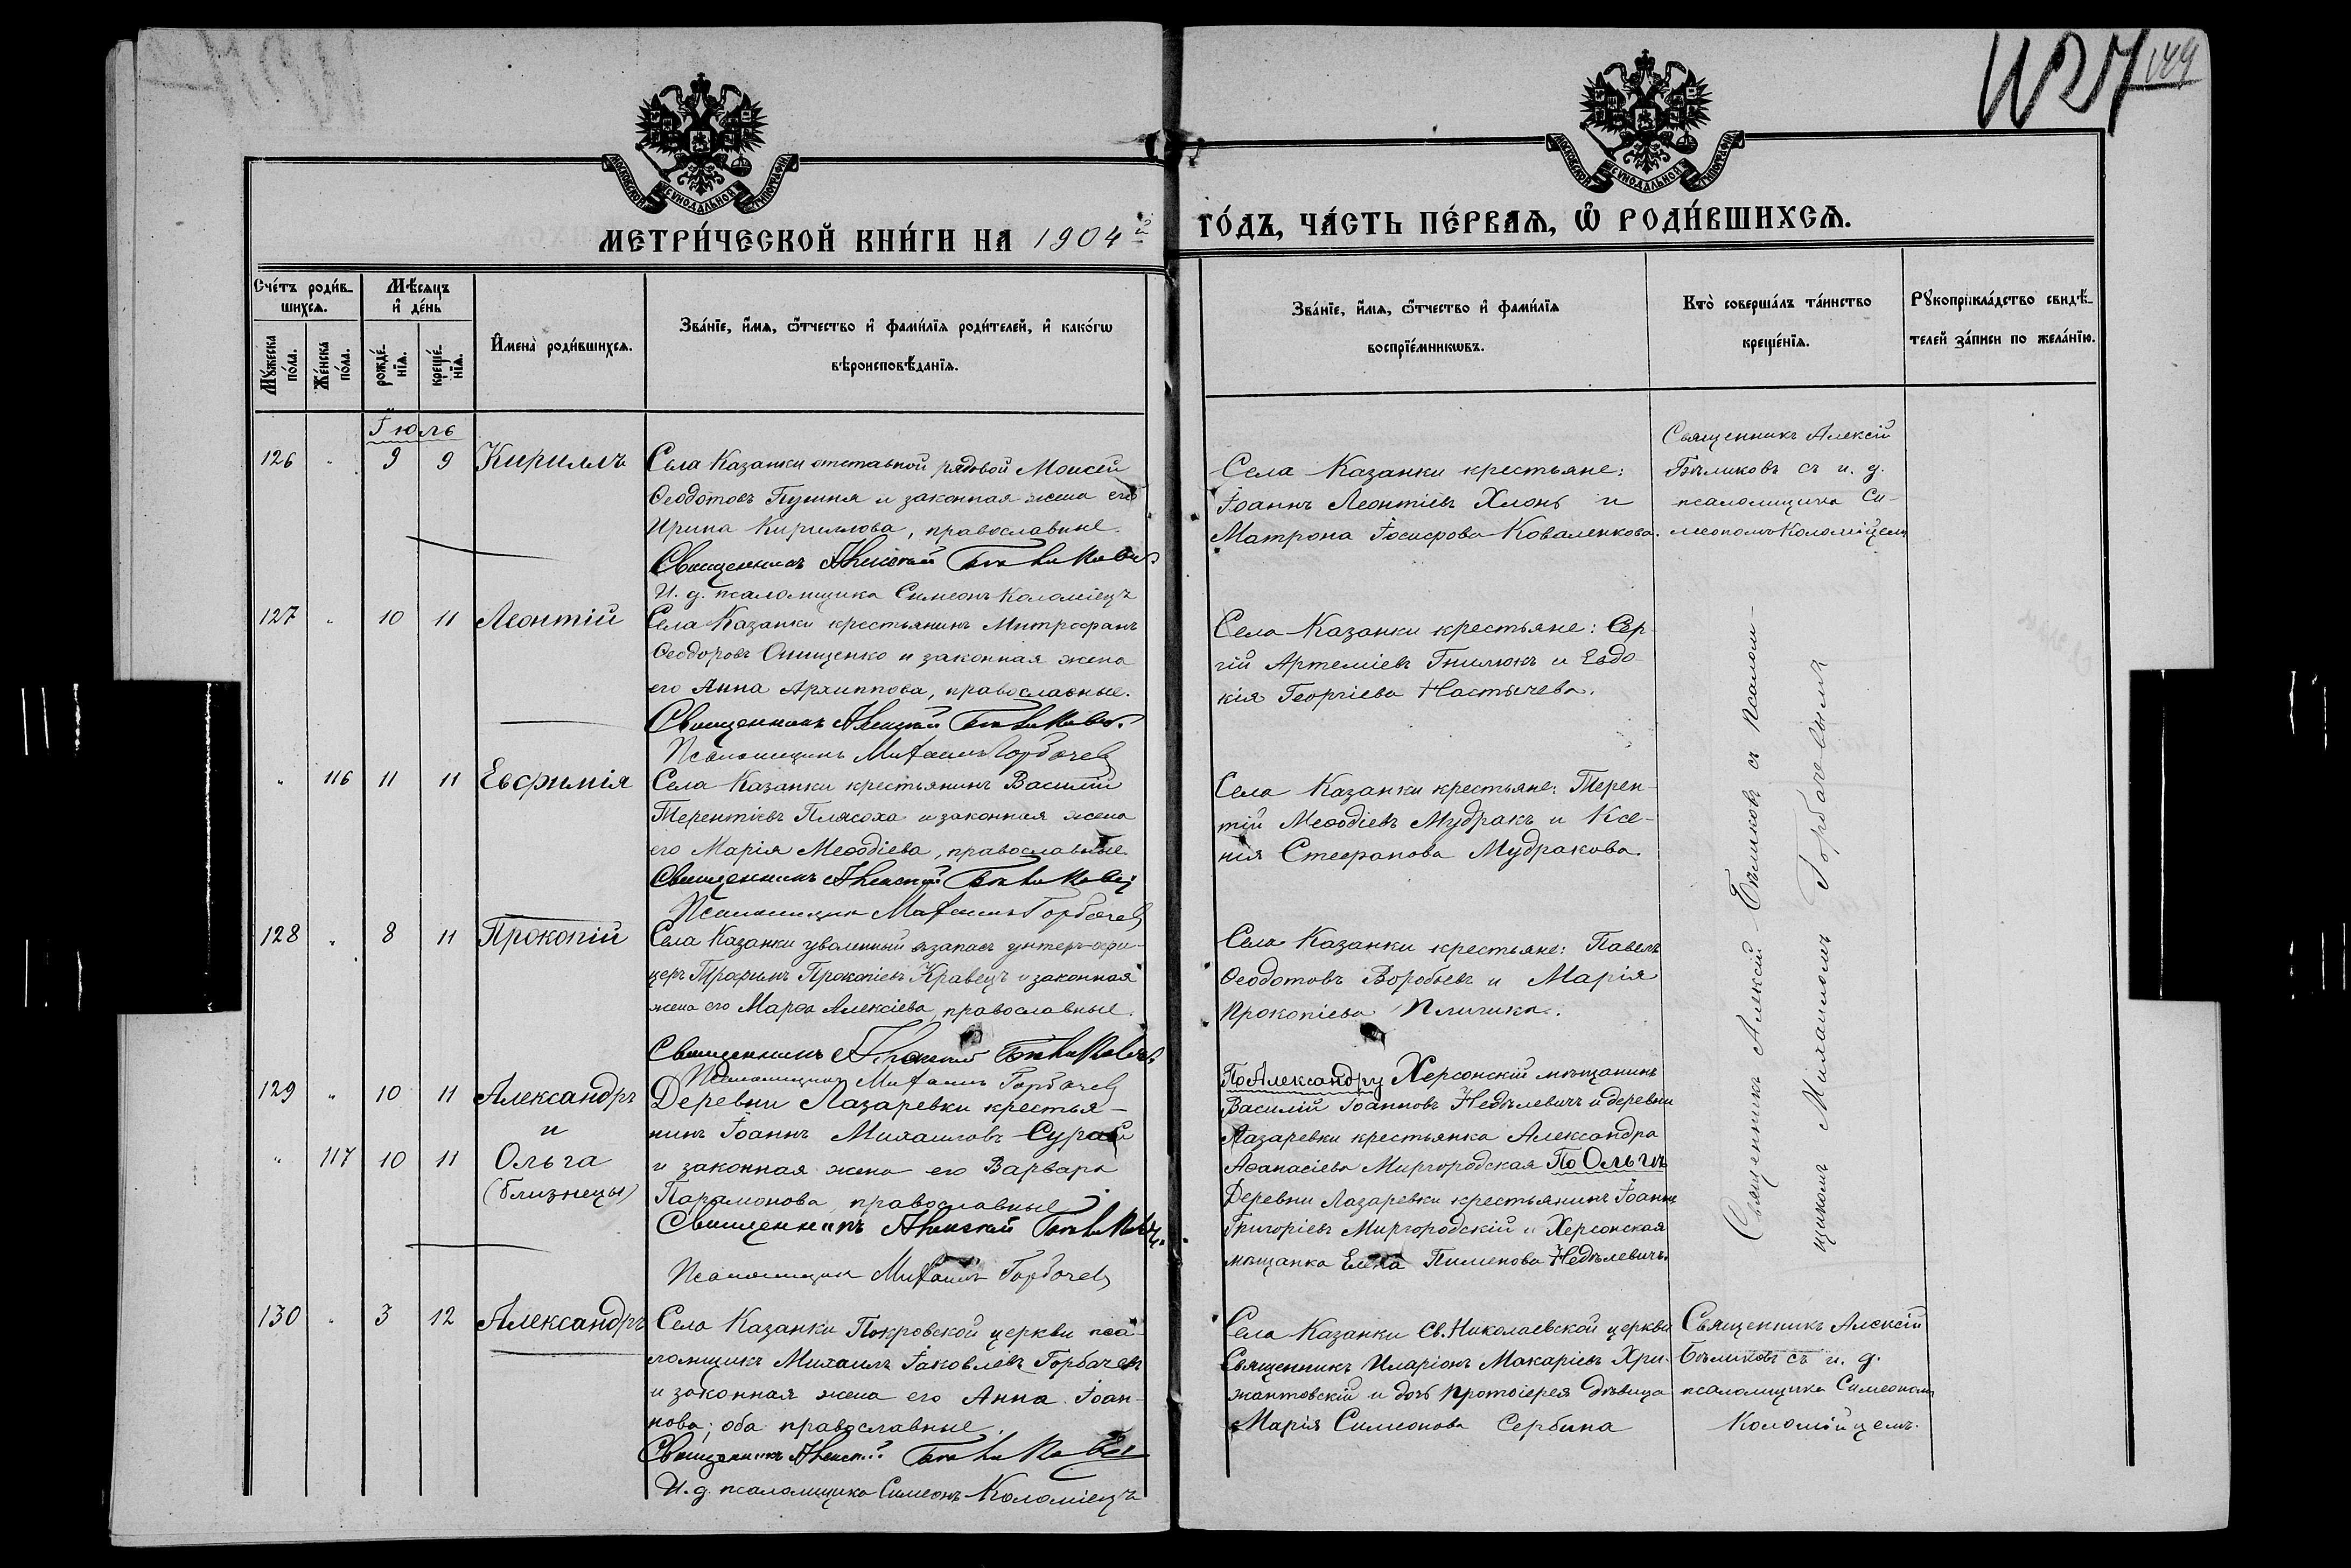 МЕТРИ́ЧЕСКОЙ КНИ́ГИ НА 1904й
ГО́ДЪ, ЧА́СТЬ ПЕ́РВАЯ, Ѿ РОДИ́ВШИХСЯ.
МОСКОВСКОЙ СѴНОДАЛЬНОЙ ТИПОГРАФІИ
МОСКОВСКОЙ СѴНОДАЛЬНОЙ ТИПОГРАФІИ
144
Сче́тъ роди́в-
шихся.
Мѣ́сяцъ
и҆ де́нь
Мꙋ́жеска
по́ла.
Же́нска
по́ла.
рожде́-
нїя.
креще́-
нїя.
И҆мена̀ роди́вшихся.
Зва́нїе, и҆́мя, ѻ҆́тчество и҆ фами́лїя роди́телей, и҆ како́гѡ
вѣроисповѣ́данїя.
Зва́нїе, и҆́мя, ѻ҆́тчество и҆ фами́лїя
воспрїе́мникѡвъ.
Кто̀ соверша́лъ та́инство
креще́нїя.
Рꙋкоприкла́дство свидѣ́-
телей за́писи по жела́нїю.
Іюль
126 " 9 9 Кириллъ
Села Казанки отставной рядовой Моисей
Ѳеодотовъ Пушня и законная жена его
Ирина Кириллова, православные.
Священникъ Алексій Бѣликовъ
И. д. псаломщика Симеонъ Коломіецъ
Села Казанки крестьяне:
Іоаннъ Леонтіевъ Хлонь и
Матрона Іосифова Коваленкова.
Священникъ Алексій
Бѣликовъ съ и. д.
псаломщика Си-
меономъ Коломійцемъ
127 " 10 11 Леонтій
Села Казанки крестьянинъ Митрофанъ
Ѳеодоровъ Онищенко и законная жена
его Анна Архиппова, православные.
Священникъ Алексій Бѣликовъ.
Псаломщикъ Михаилъ Горбачевъ
Села Казанки крестьяне: Сер-
гій Артеміевъ Гнилюкъ и Евдо-
кія Георгіева Настычева.
" 116 11 11 Евфимія
Села Казанки крестьянинъ Василій
Терентіевъ Плясоха и законная жена
его Марія Меѳодіева, православные.
Священникъ Алексій Бѣликовъ
Псаломщикъ Михаилъ Горбачевъ
Села Казанки крестьяне: Терен-
тій Меѳодіевъ Мудракъ и Ксе-
нія Стефанова Мудракова.
128 " 8 11 Прокопій
Села Казанки уволенный въ запасъ унтеръ-офи-
церъ Трофимъ Прокопіевъ Кравецъ и законная
жена его Марѳа Алексіева, православные.
Священникъ Алексій Бѣликовъ
Псаломщикъ Михаилъ Горбачевъ
Села Казанки крестьяне: Павелъ
Ѳеодотовъ Воробьевъ и Марія
Прокопіева
129 " 10 11 Александръ
и
" 117 10 11 Ольга
(близнецы)
Деревни Лазаревки крестья-
нинъ Іоаннъ Михаиловъ Сурай
и законная жена его Варвара
Парамонова, православные.
Священникъ Алексій Бѣликовъ.
Псаломщикъ Михаилъ Горбачевъ
По Александру Херсонскій мѣщанинъ
Василій Іоанновъ Недѣлевичъ и деревни
Лазаревки крестьянка Александра
Аѳанасіева Миргородская По Ольгѣ
Деревни Лазаревки крестьянинъ Іоаннъ
Григоріевъ Миргородскій и Херсонская
мѣщанка Елена Пименова Недѣлевичъ.
Священникъ Алексій Бѣликовъ съ псалом-
щикомъ Михаиломъ Горбачевымъ
130 " 3 12 Александръ
Села Казанки Покровской церкви пса-
ломщикъ Михаилъ Іаковлевъ Горбачевъ
и законная жена его Анна Іоан-
нова; оба православные.
Священникъ Алексій Бѣликовъ
И. д. псаломщика Симеонъ Коломіецъ
Села Казанки Св. Николаевской церкви
Священникъ Иларіонъ Макаріевъ Хри-
жантовскій и дочь протоіерея дѣвица
Марія Симеонова Сербина
Священникъ Алексій
Бѣликовъ съ и. д.
псаломщика Симеономъ
Коломійцемъ.